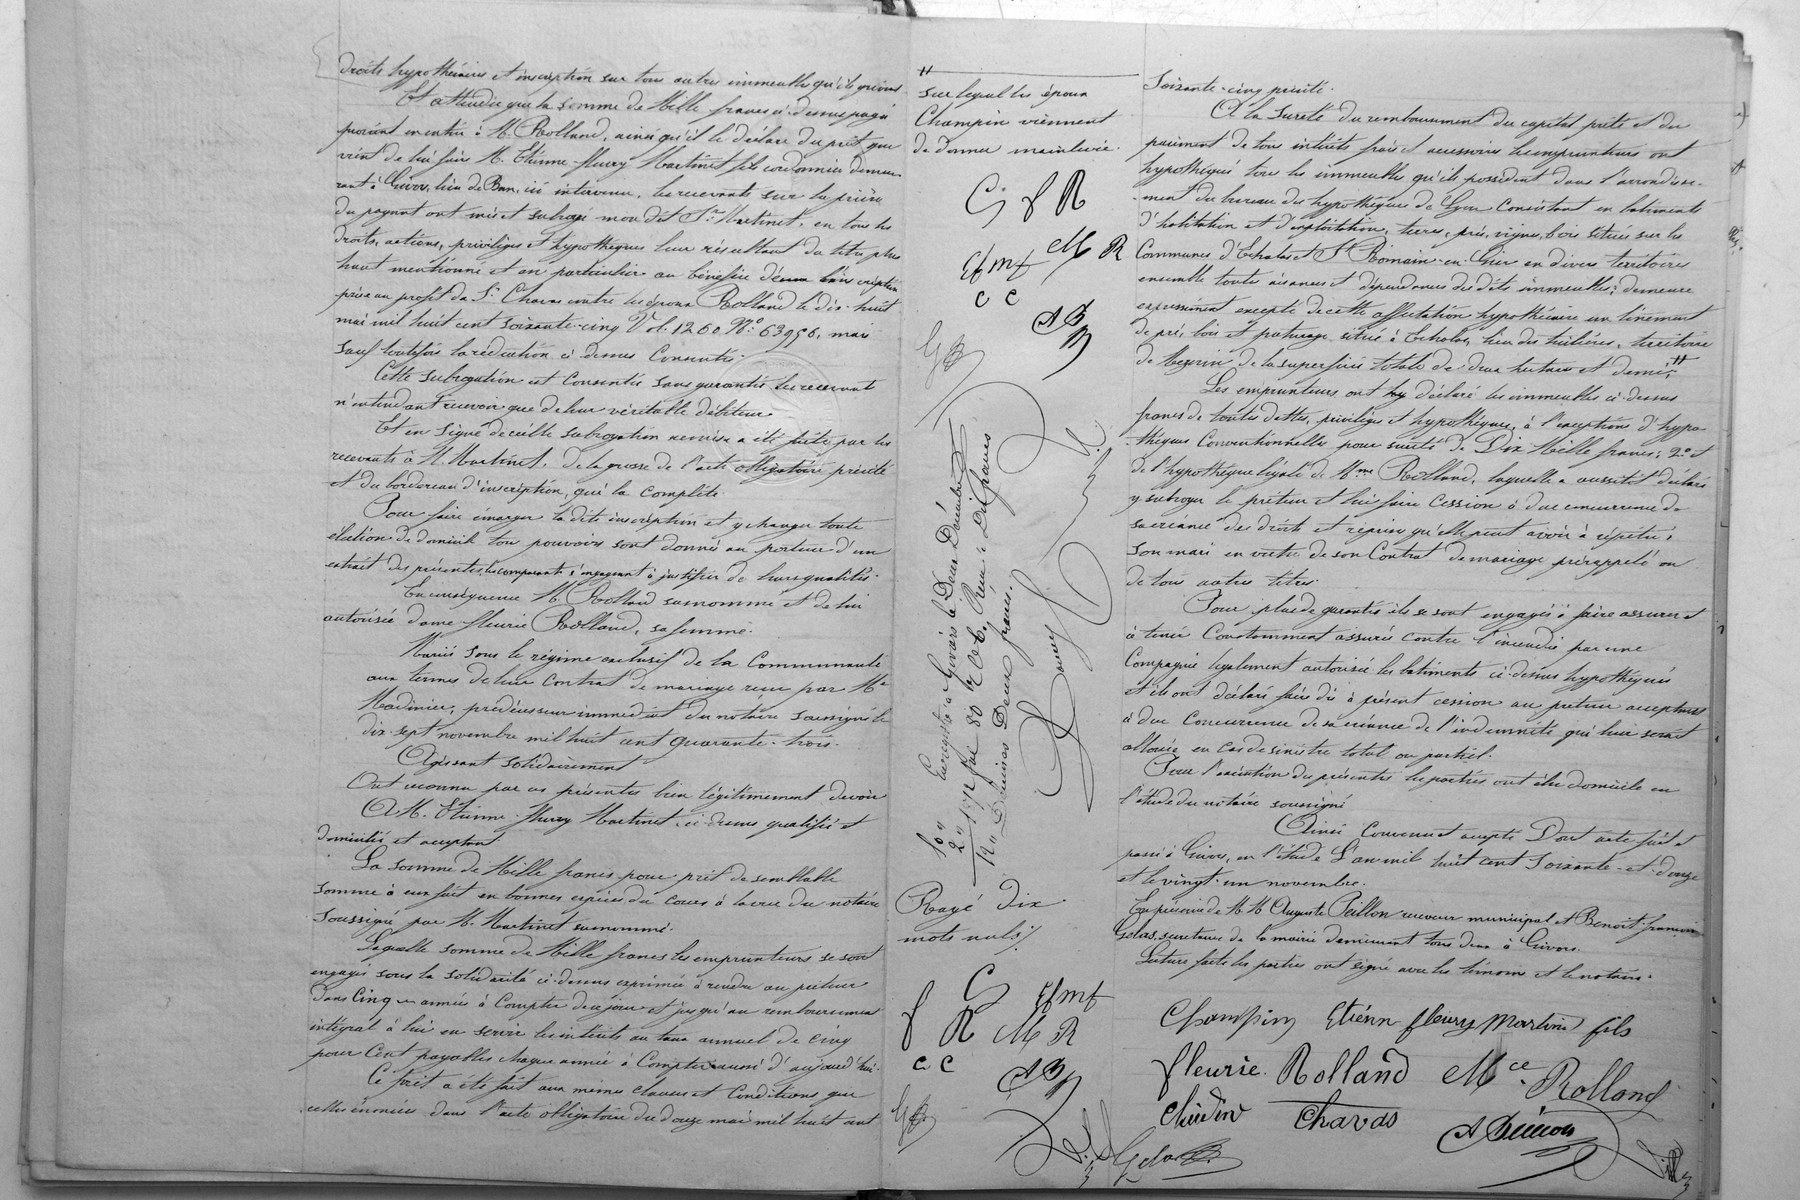 droits hypothécaires et inscription sur tous autres immeubles qu'ils grèvent
Et attendu que la somme de Mille francs ci-dessus payée
provient en entier à M. Rolland, ainsi qu'il le déclare du prêt que
vient de lui faire M. Etienne fleury Martinet fils cordonnier demeu-
rant à Givors, lieu de Bans, ici intervenu, les recevants sur la prière
du payant ont mis et subrogé mon dit Sr. Martinet, en tous les
droits, actions, privilèges et hypothèques leur résultant du titre plus
haut mentionné et en particulier au bénéfice d'une inscription
prise au profit du Sr. Chavas contre les époux Rolland le dix-huit
mai mil huit cent soixante-cinq Vol. 1260 No. 63956, mais
sauf toutefois la réduction ci-dessus Consentie.
Cette subrogation est Consentie sans garantie les recevants
n'entendant recevoir que de leur véritable débiteur
Et en signe de cette subrogation remise a été faite par les
recevants à M. Martinet, de la grosse de l'acte obligatoire précité
et du bordereau d'inscription, qui la complète
Pour faire émarger la dite inscription et y changer toute
élection de domicile tous pouvoirs sont donnés au porteur d'un
extrait des présentes, les comparants s'engageant à justifier de leurs qualités.
En conséquence M. Rolland susnommé et de lui
autorisée dame fleurie Rolland, sa femme.
Mariés sous le régime exclusif de la Communauté
aux termes de leur Contrat de mariage reçu par Me
Madinier, prédécesseur immédiat du notaire soussigné le
dix-sept novembre mil huit cent quarante-trois.
Agissant solidairement
Ont reconnu par ces présentes bien légitimement devoir
A M. Etienne fleury Martinet ci-dessus qualifié et
domicilié et acceptant
La somme de Mille francs pour prêt de semblable
somme à eux fait en bonnes espèces du cours à la vue du notaire
soussigné par M. Martinet susnommé.
Laquelle somme de Mille francs les emprunteurs se sont
engagés sous la solidarité ci-dessus exprimée à rendre au prêteur
dans Cinq années à Compter de ce jour et jusqu'au remboursement
intégral à lui en servir les intérêts au taux annuel de cinq
pour Cent payables chaque année à Compter aussi d'aujourd'hui.
Ce prêt a été fait aux mêmes clauses et Conditions que
celles énoncées dans l'acte obligatoire du douze mai mil huit cent
#
sur lequel les époux
Champin viennent
de donner mainlevée.
C f R
Efmf M R
C C
AB
Enregistré à Givors le Deux Décembre
1872 fol. 80 Ro C. 6. Reçu: Dix francs
Décimes Deux francs.
10 "
2 "
12 "
Rayé dix
mots nuls
C Efmf
f R M R
C C
AB
soixante-cinq précité.
A la sureté du remboursement du capital prêté et du
paiement de tous intérêts frais et accessoires les emprunteurs ont
hypothéqué tous les immeubles qu'ils possèdent dans l'arrondisse-
ment du bureau des hypothèques de Lyon Consistant en batiments
d'habitation et d'exploitation, terres, prés, vignes, bois situés sur les
Communes d'Echalas et St Romain-en-Gier en divers territoires
ensemble toutes aisances et dépendances des dits immeubles; demeure
expressément excepté de cette affectation hypothécaire un tènement
de pré, bois et paturage, situé à Echalas, lieu des tuilières, territoire
de de la superficie totale de deux hectares et demi; #
Les emprunteurs ont déclaré les immeubles ci-dessus
francs de toutes dettes, privilèges et hypothèques, à l'exceptions d'hypo-
thèques Conventionnelles pour sureté de Dix Mille francs; 2o. et
de l'hypothèque légale de Mme Rolland, laquelle a aussitôt déclaré
y subroger le prêteur et lui faire Cession à due concurrence de
sa créance des droits et reprises qu'elle peut avoir à répéter à
son mari en vertu de son Contrat de mariage prérappelé ou
de tous autres titres.
Pour plus de garantie ils se sont engagés à faire assurer et
à tenir Constamment assurés contre l'incendie par une
Compagnie légalement autorisée les batiments ci-dessus hypothéqués
et ils ont déclaré faire dès à présent cession au prêteur acceptant
à due Concurrence de sa créance de l'indemnité qui leur serait
allouée en Cas de sinistre total ou partiel.
Pour l'exécution des présentes les parties ont élu domicile en
l'étude du notaire soussigné
Ainsi Convenu et accepté Dont acte fait et
passé à Givors, en l'étude L'an mil huit cent soixante-et-douze
et le vingt-un novembre.
En présence de M. M. Auguste Peillon receveur municipal et Benoit françois
Gelas, secrétaire de la mairie demeurant tous deux à Givors.
Lecture faite les parties ont signé avec les témoins et le notaire.
Champin Etienn fleury Martinet fils
fleurie Rolland Mce Rolland
Claudine Chavas
Gelas